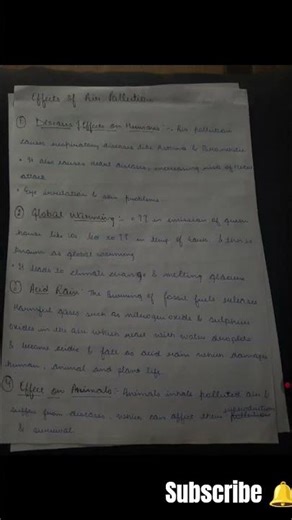 Effects of Air Pollution
① Diseases / Effects on Humans :- Air pollution
causes respiratory diseases like Asthma &
• It also causes diseases, increasing risk of
attack
• Eye irritation & skin problems.
② Global Warming :- ↑↑ in emission of green
house like ↑↑ in temp of
known as global warming
• It leads to climate change & melting glaciers
③ Acid Rain The burning of fossil fuels release
harmful gases such as nitrogen oxide & sulphur
oxides in the air which react with water droplets
& become acidic & fall as acid rain which damages
human, animal and plant life
④ Effect on Animals: Animals inhale polluted air &
suffer from diseases. which can affect their reproduction
& survival
Subscribe 🔔